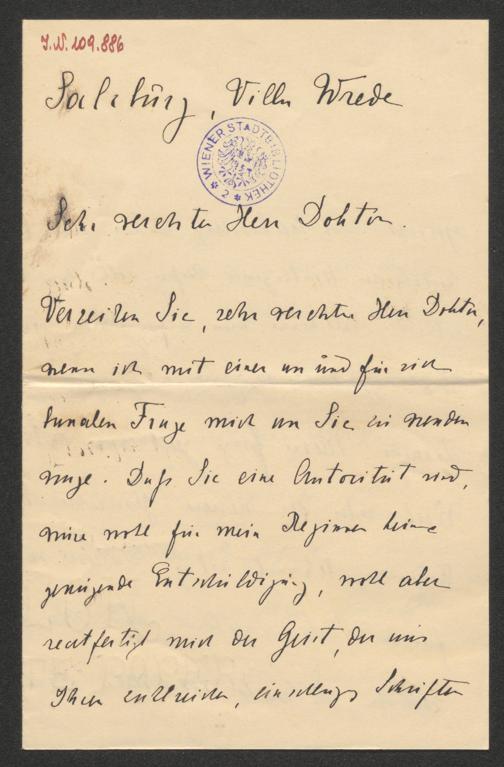 J.N. 109.886
Salzburg, Villa Wrede
WIENER STADTBIBLIOTHEK
Sehr verehrter Herr Doktor.
Verzeihen Sie, sehr verehrter Herr Doktor,
wenn ich mit einer an und für sich
banalen Frage mich an Sie zu wenden
wage. Daß Sie eine Autorität sind,
wäre wohl für mein Beginnen keine
genügende Entschuldigung, wohl aber
rechtfertigt mich der Geist, der aus
Ihren zahlreichen, einschlägig. Schriften